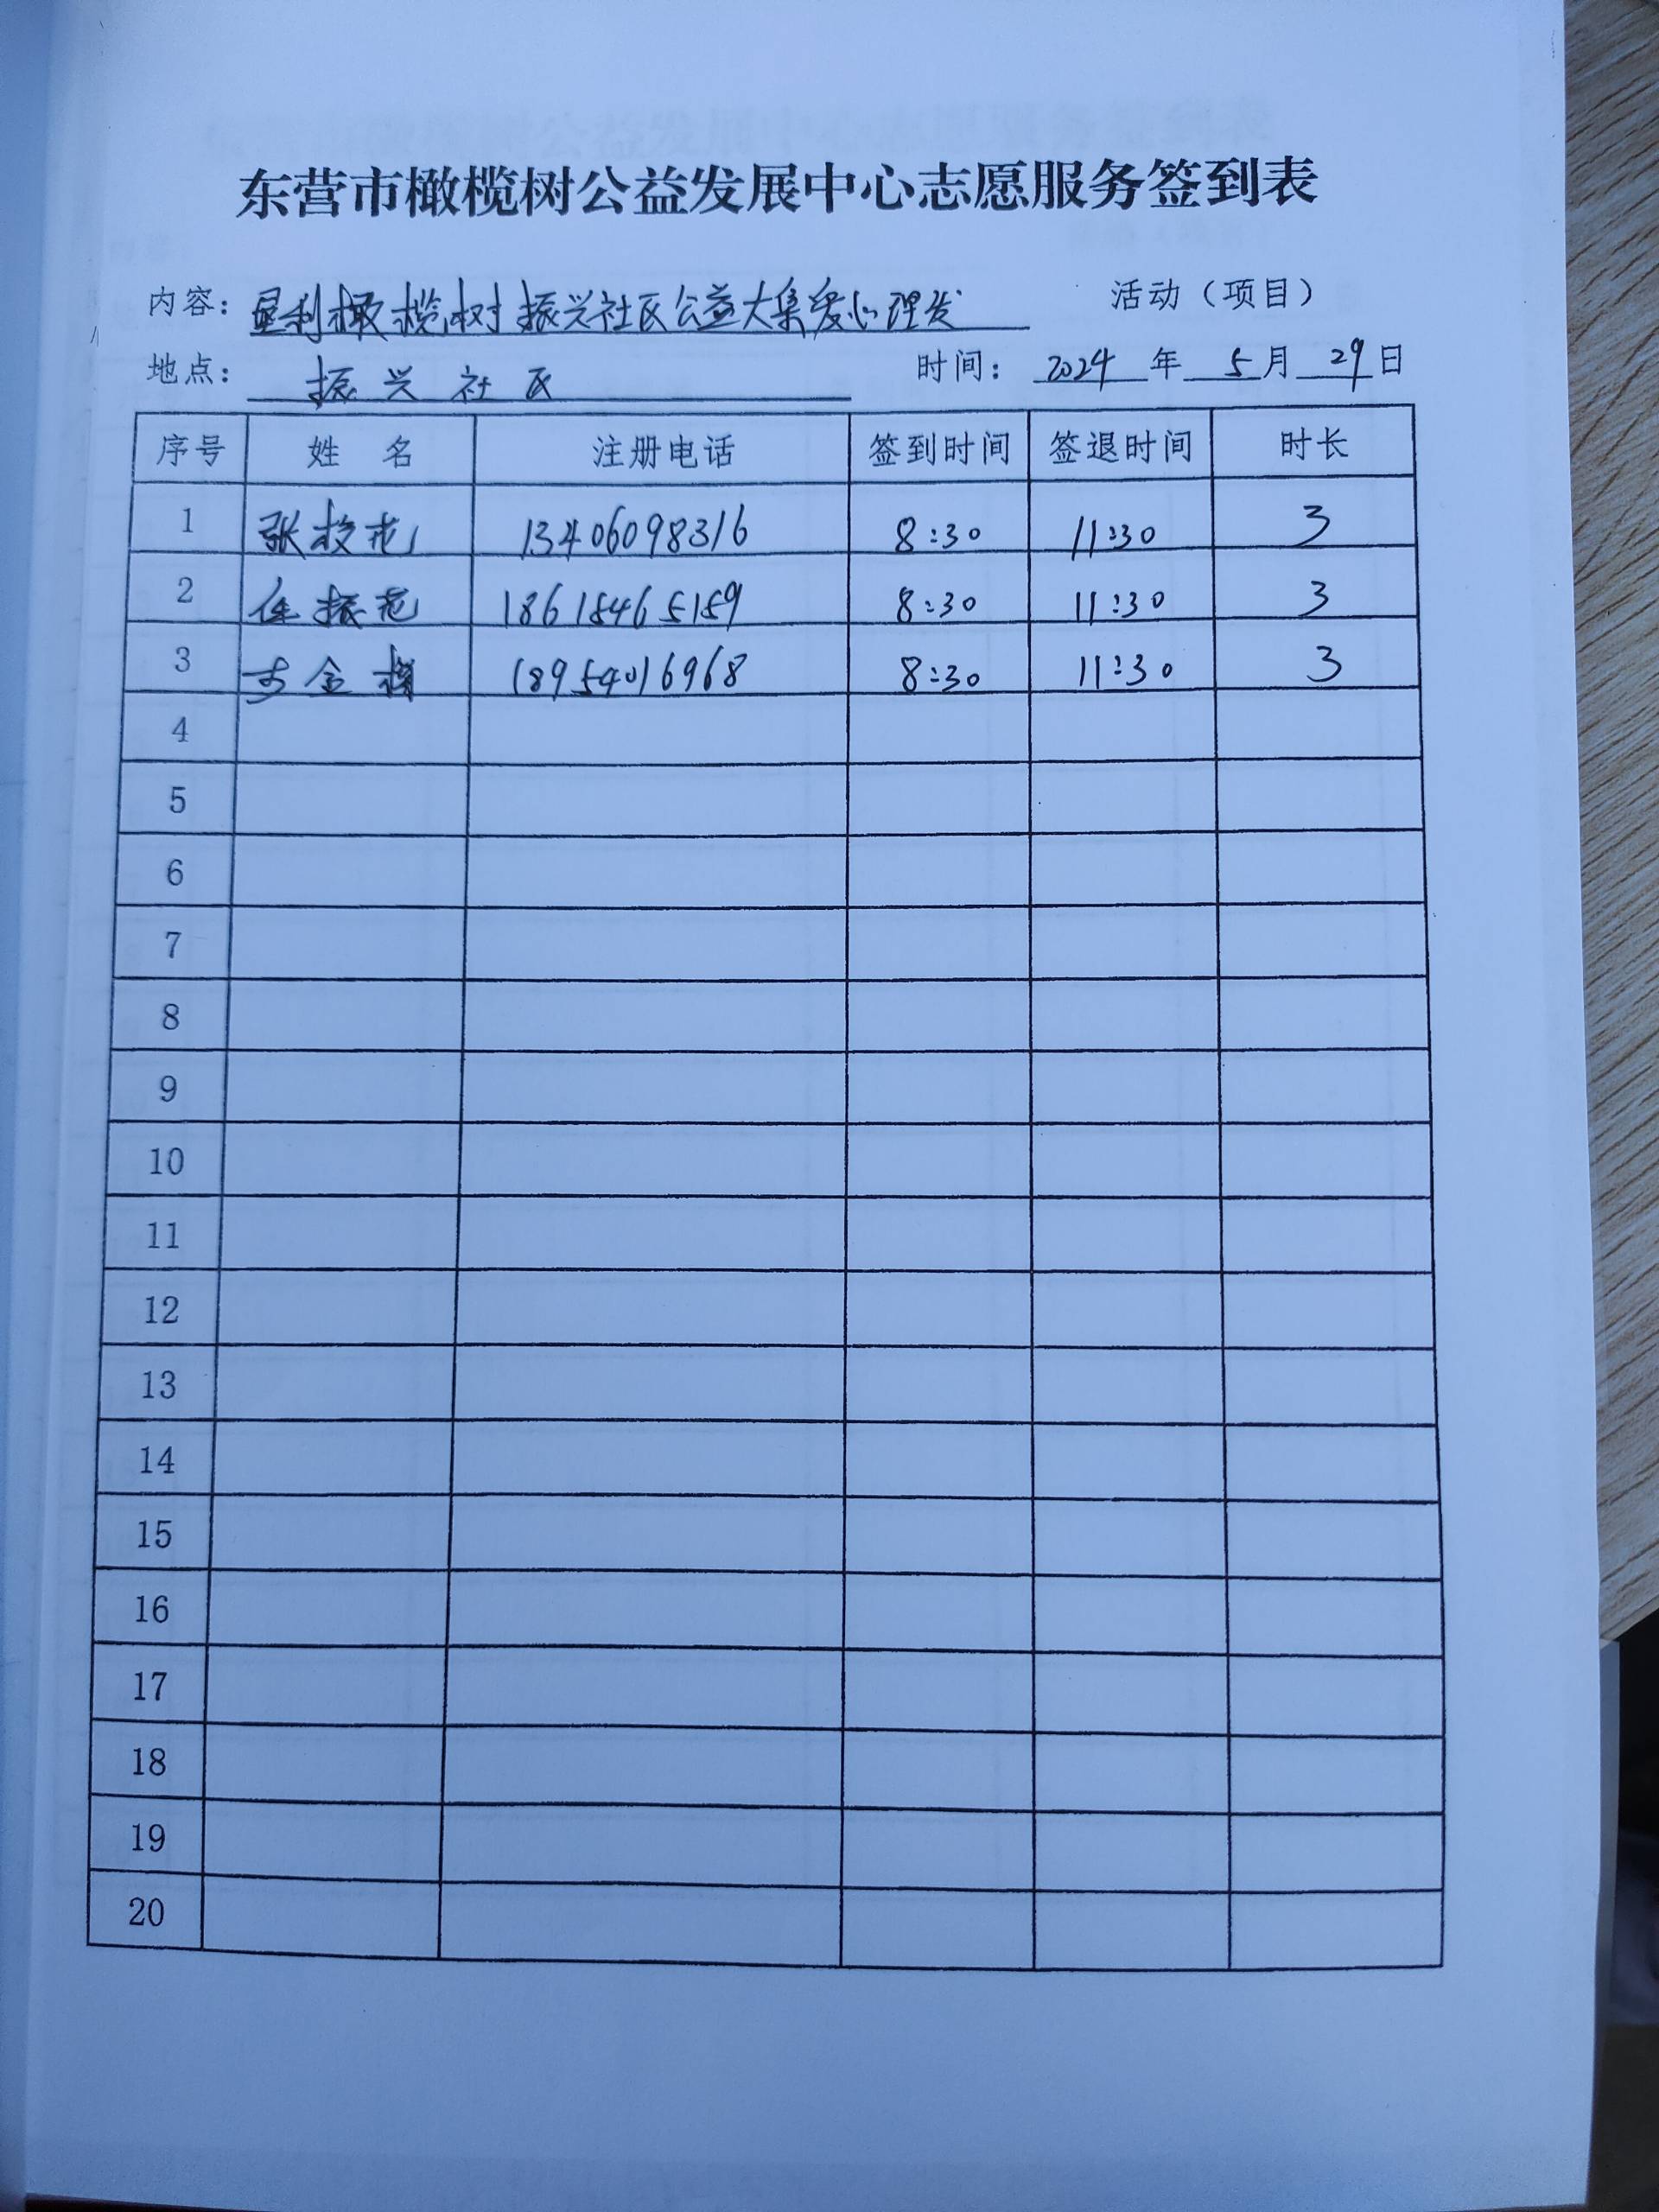 东营市橄榄树公益发展中心志愿服务签到表
内容：垦利橄榄树振兴社区公益大集爱心理发 活动（项目）
地点：振兴社区 时间：2024年5月29日
序号 姓名 注册电话 签到时间 签退时间 时长
1 张 花 13406098316 8:30 11:30 3
2 任振花 18615465159 8:30 11:30 3
3 金 18954016968 8:30 11:30 3
4
5
6
7
8
9
10
11
12
13
14
15
16
17
18
19
20